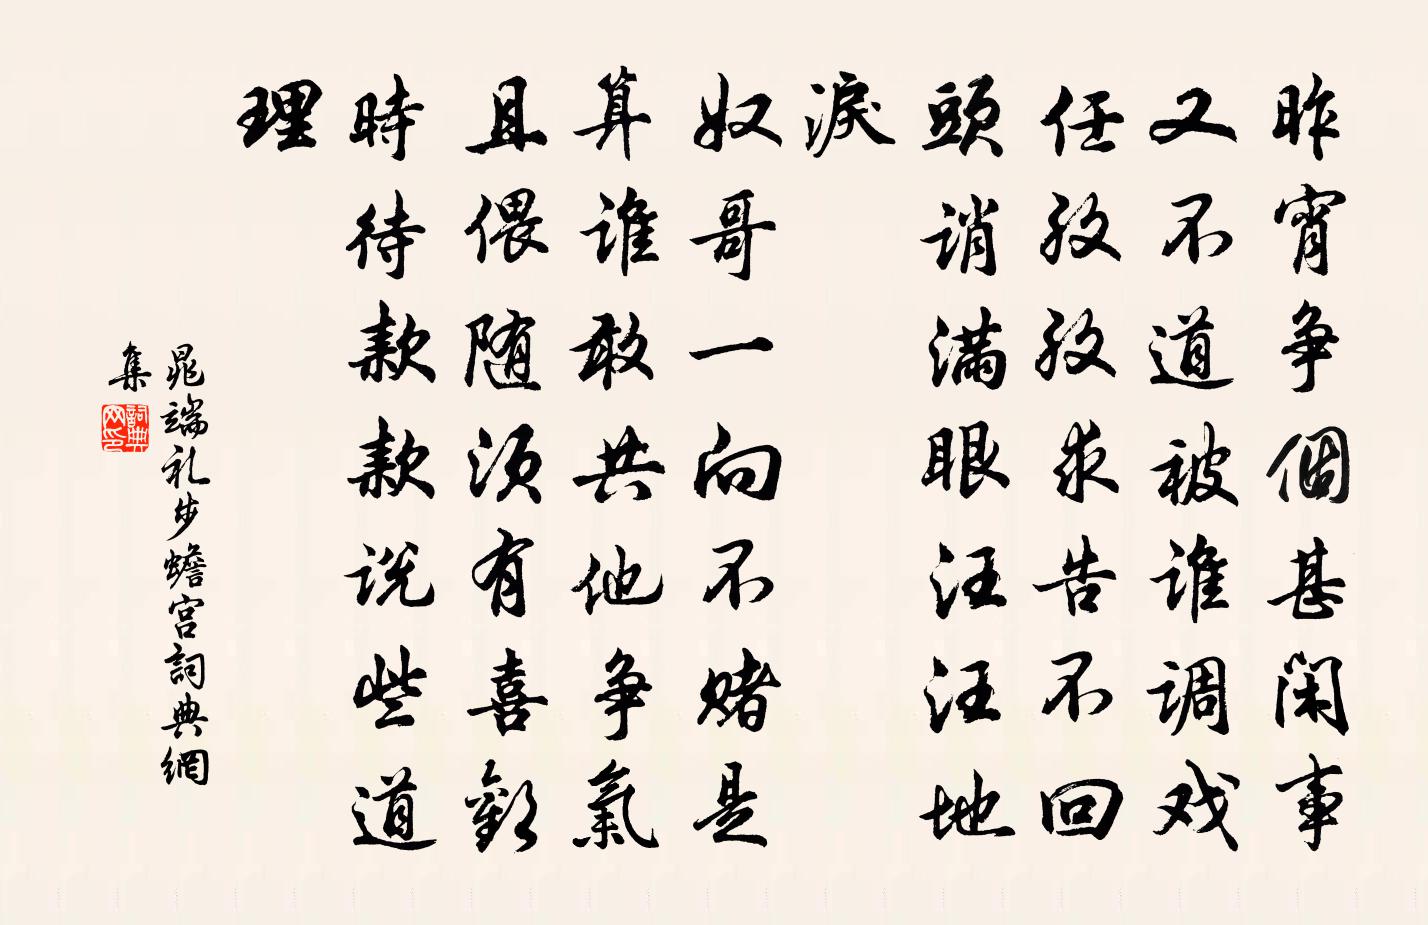 昨宵争個甚闲事
又不道被谁调戏
任孜孜求告不回
頭诮满眼汪汪地
淚
奴哥一向不赌是
算谁敢共他争氣
且偎随须有喜歡
時待款款说些道
理
晁端礼步蟾宫詞典網
集
詞典网印